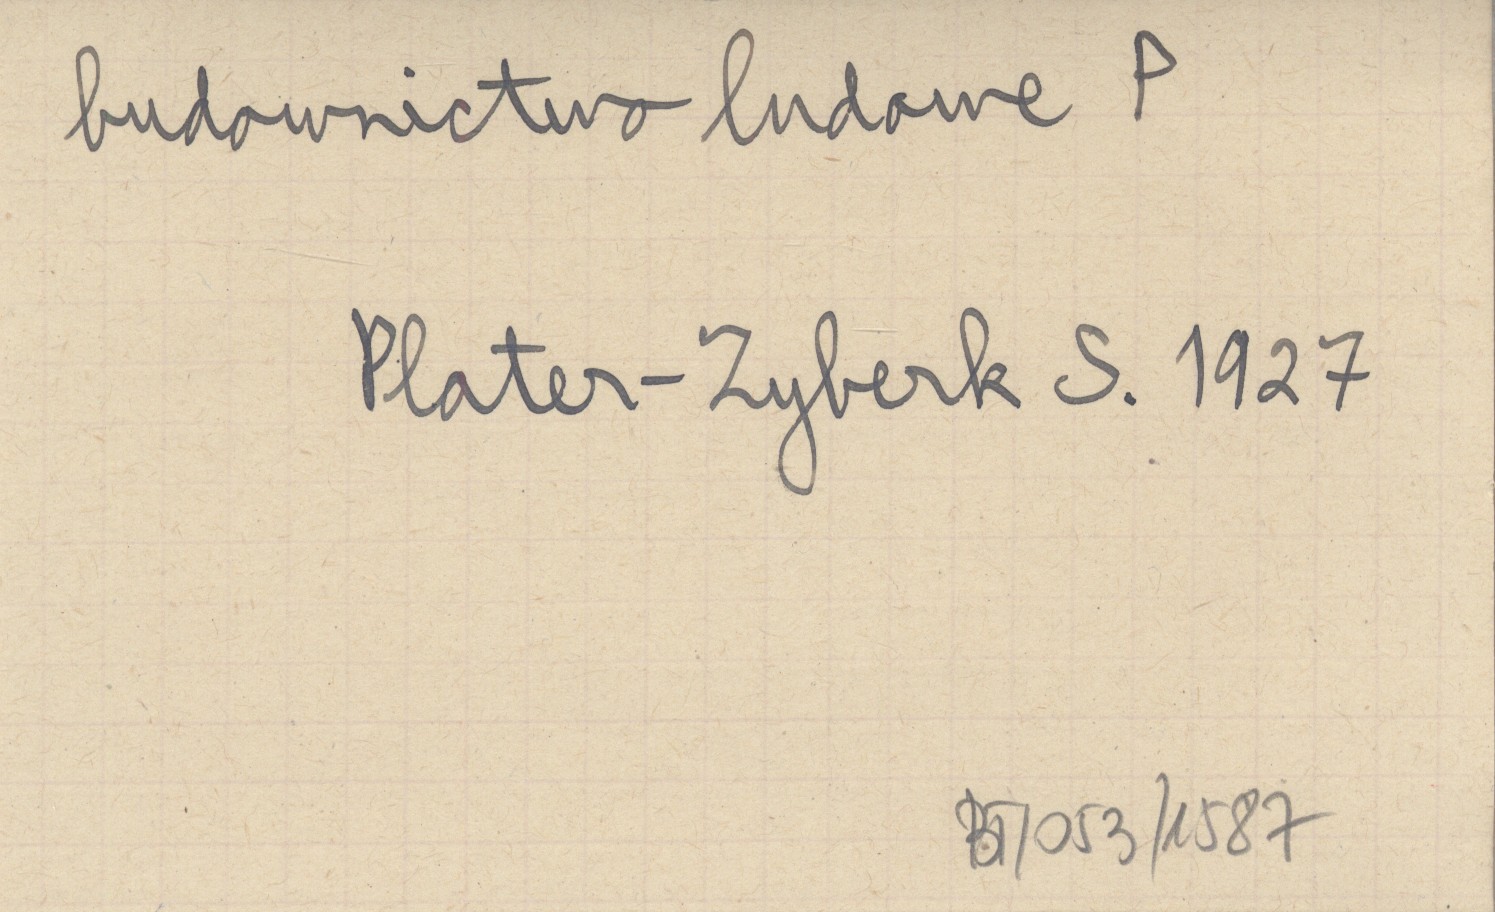 budownictwo ludowe P
Plater-Zyberk S. 1927
/053/1587